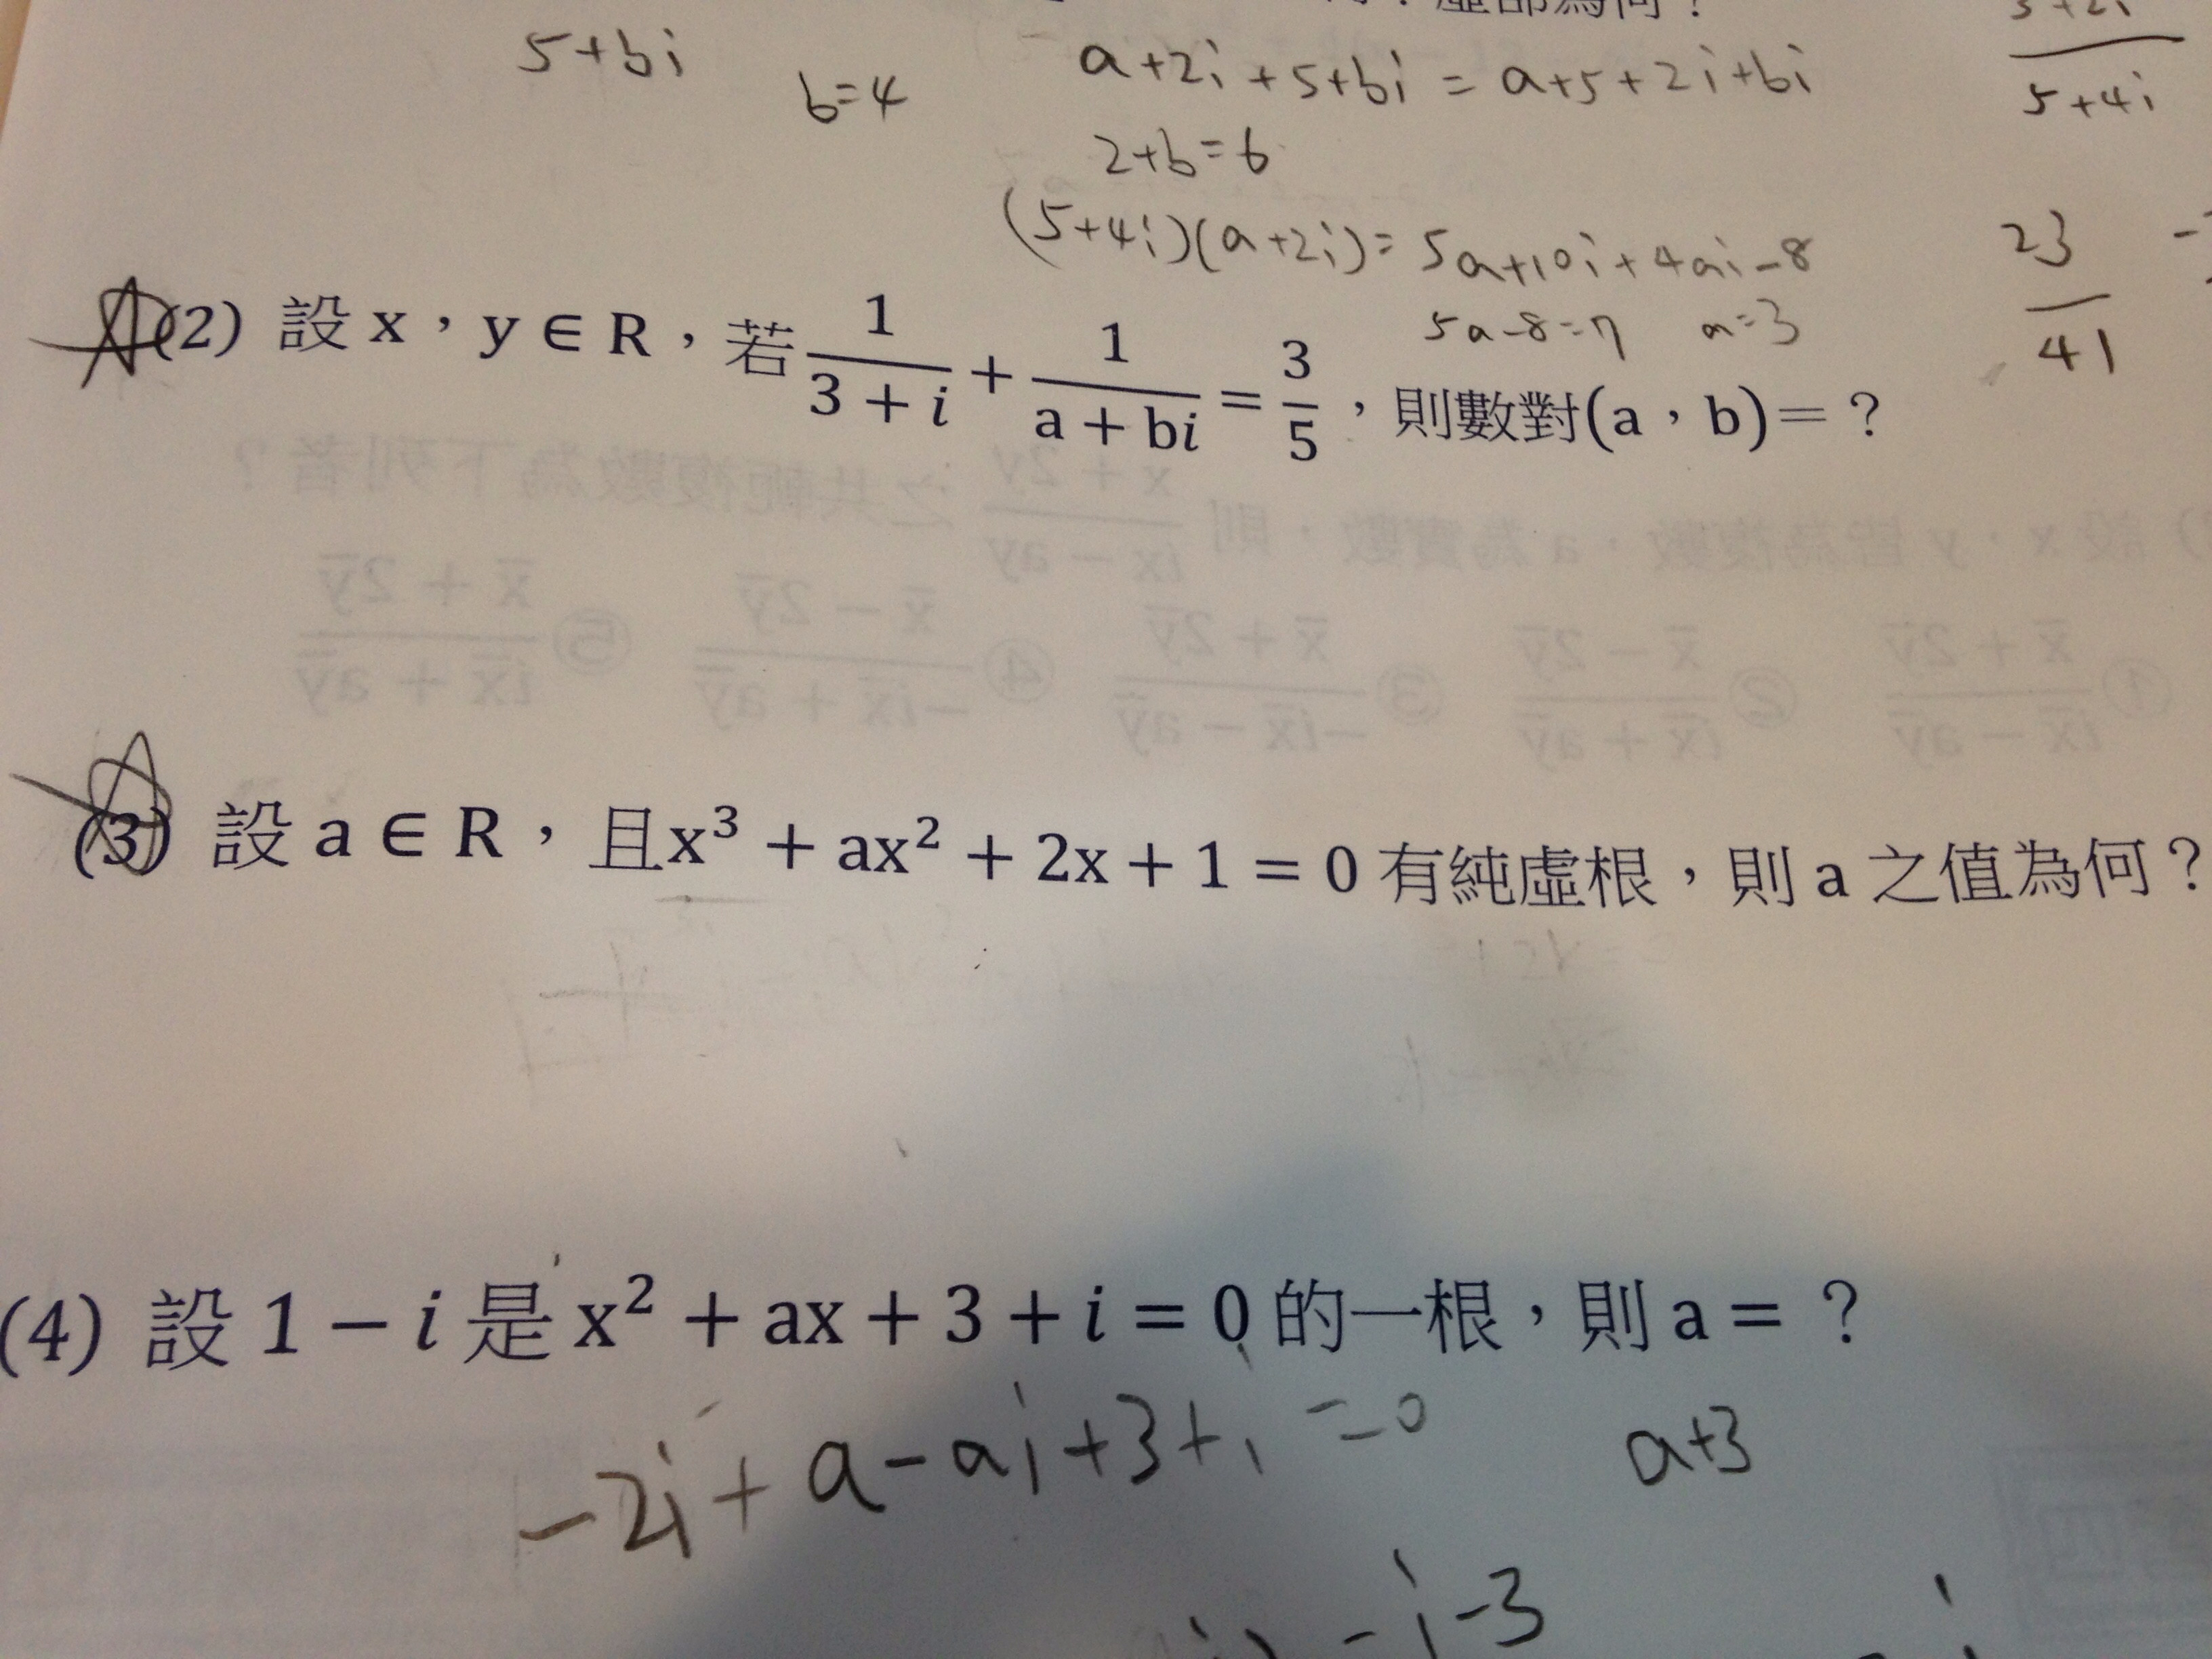 5+bi
b=4
a+2i+5+bi = a+5+2i+bi
5+4i
2+b=6
(5+4i)(a+2i)= 5a+10i+4ai-8
5a-8=7 a=3
23
41
(2) 設 x，y ∈ R，若 1/(3 + i) + 1/(a + bi) = 3/5，則數對(a，b)=？
(3) 設 a ∈ R，且x³ + ax² + 2x + 1 = 0 有純虛根，則 a 之值為何？
(4) 設 1 − i 是 x² + ax + 3 + i = 0 的一根，則 a = ？
-2i+a-ai+3+i=0
a+3
-i-3